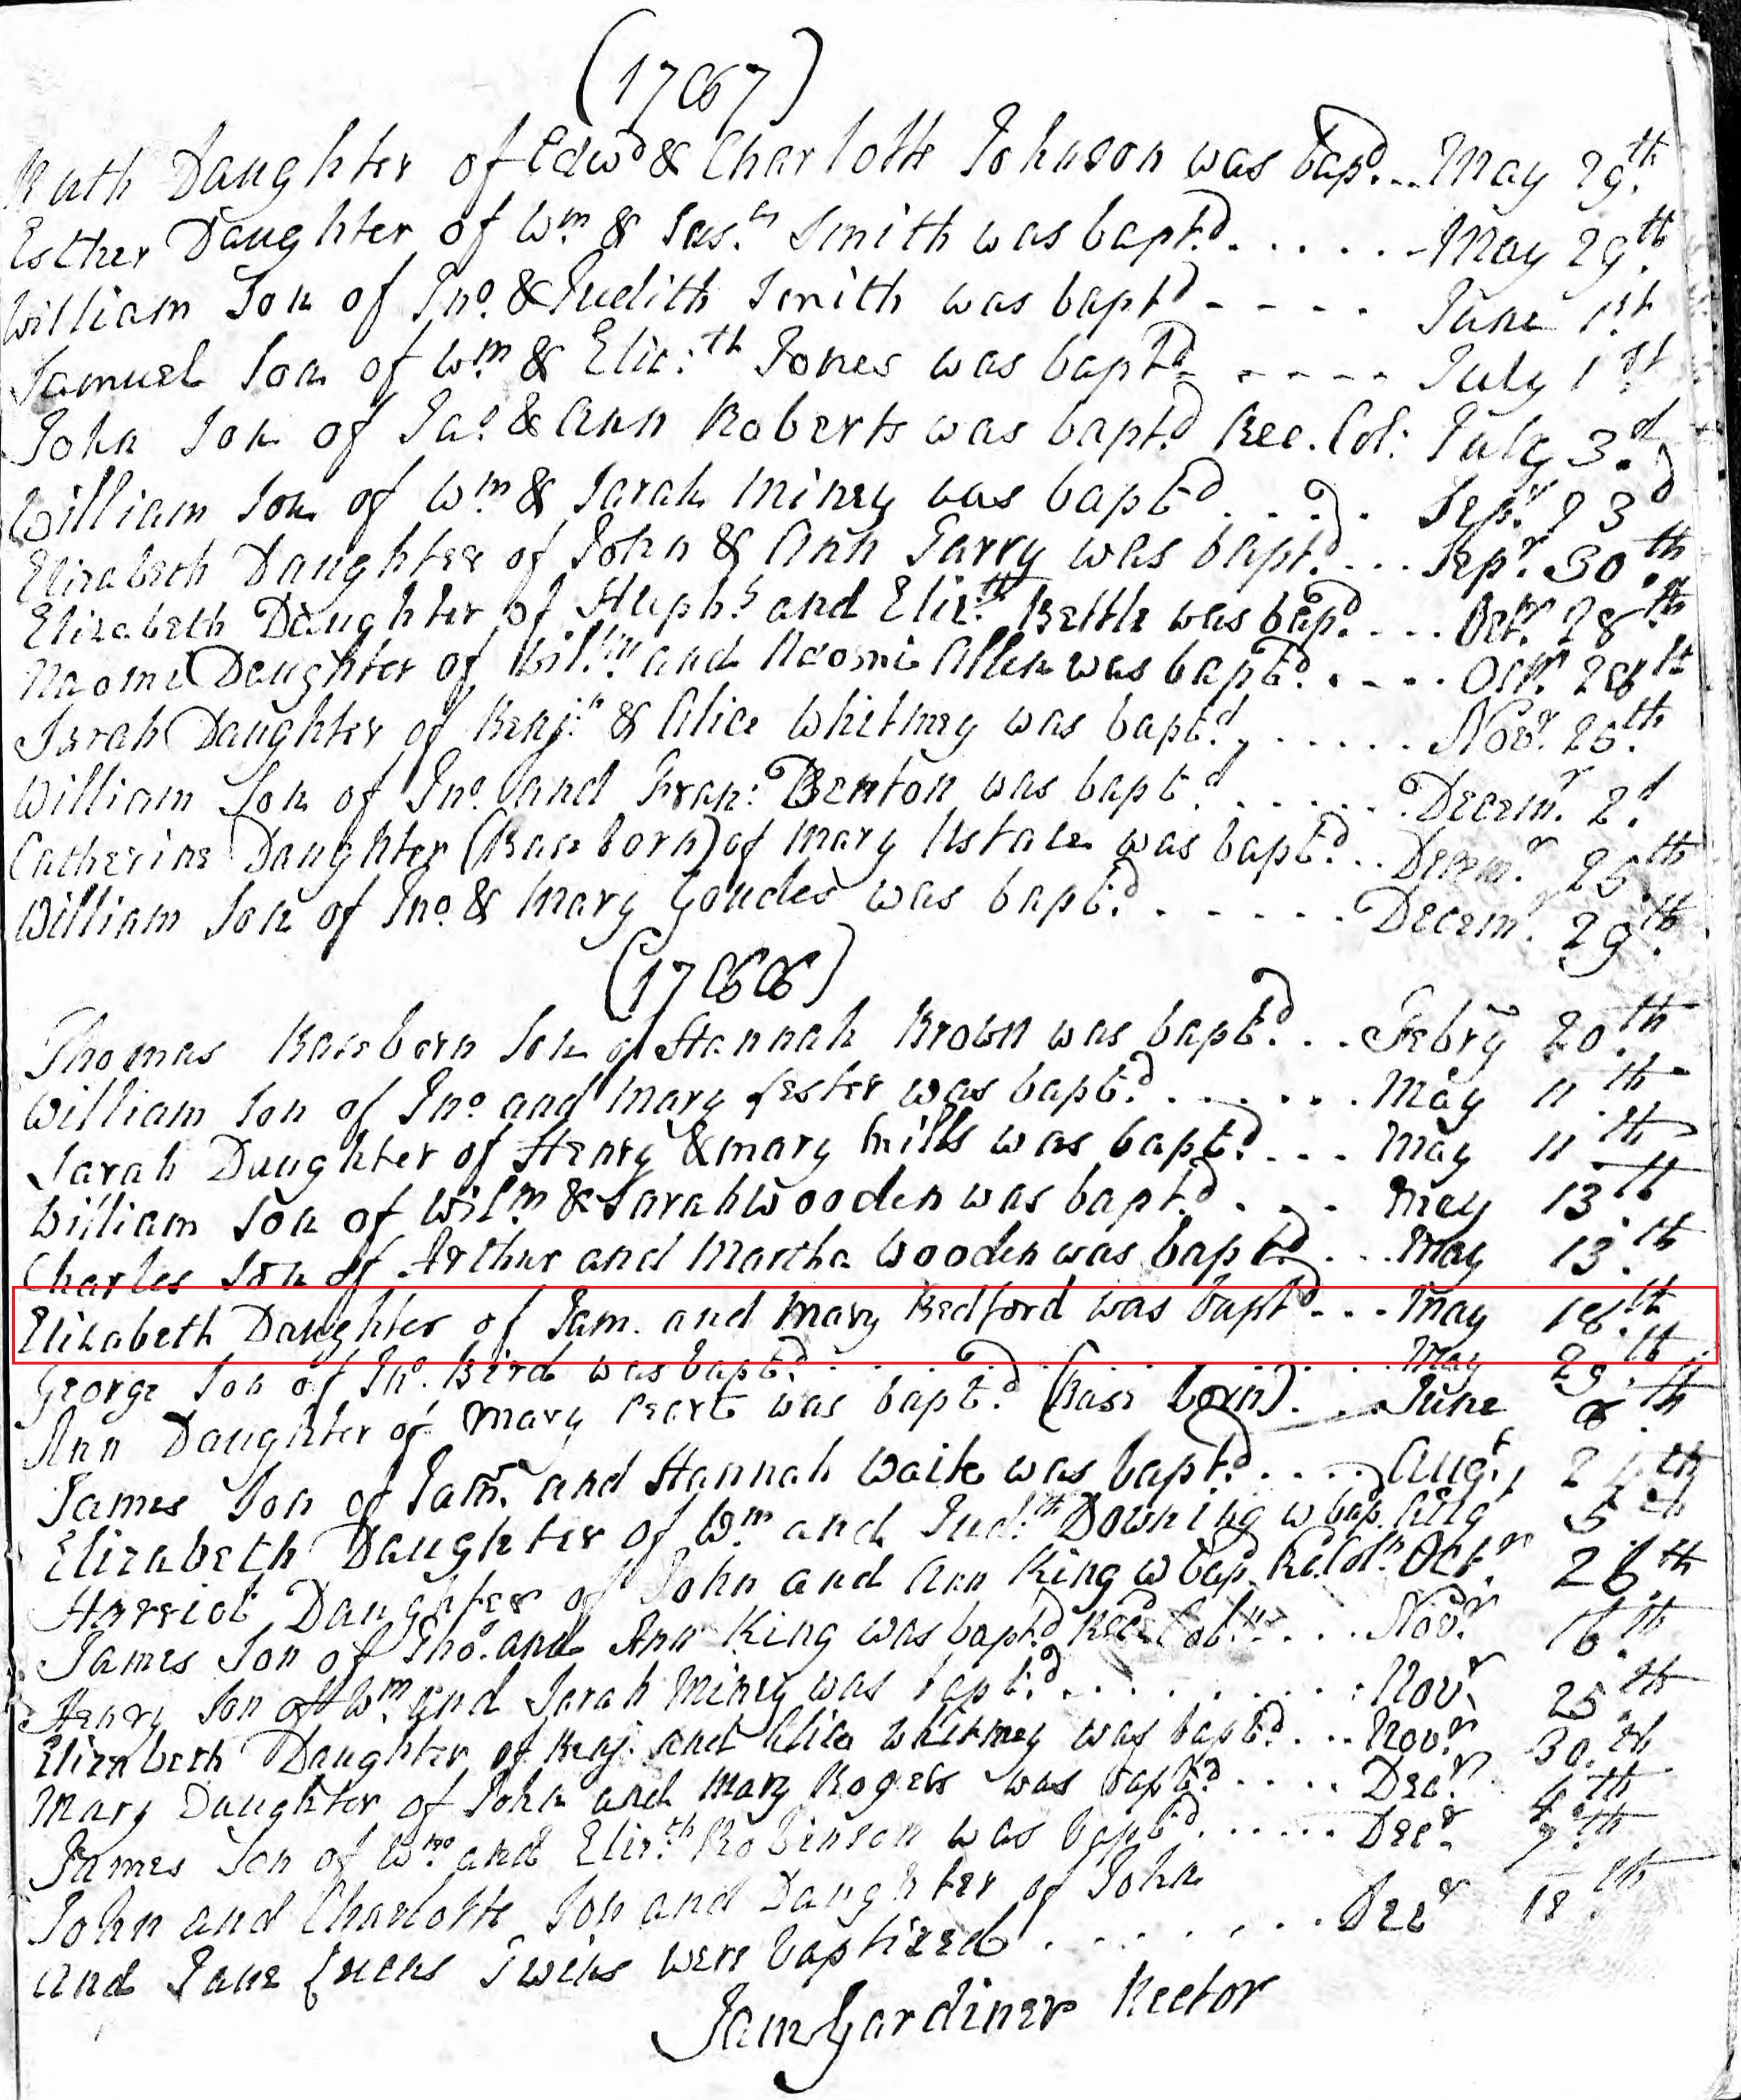 (1767)
Ruth Daughter of Edwd & Charlotte Johnson was bapd... May 29.th
Esther Daughter of Wm & Sus.n Smith was bapt.d ..... May 29.th
William Son of Jno. & Judith Smith was baptd - - - - June 1st
Samuel Son of Wm & Eliz:th Jones was baptd - - - - July 1st
John Son of Jas. & Ann Roberts was bapt.d Rec. Col: July 3.d
William Son of Wm & Sarah Miney was bapt.d .... Sepr. 23d
Elizabeth Daughter of John & Ann Garry was bapt.d ... Sepr. 30.th
Elizabeth Daughter of Steph.s and Eliz.th Bettle was bap.d .... Octr. 28th
Naomi Daughter of Wil.m and Naomi Allen was bapt.d .... Octr. 28th
Sarah Daughter of Benj.n & Alice Whitmey was bapt.d ...... Novr. 25.th
William Son of Jno. and Fran: Benton was bapt.d ...... Decemr. 2.d
Catherine Daughter (Base born) of Mary Ustace was bapt.d .. Decemr. 25th
William Son of Jno. & Mary Goudes was bapt.d ...... Decemr. 29.th
(1768)
Thomas Baseborn Son of Hannah Brown was bapt.d ... Febry 20.th
William Son of Jno. and Mary Lester was bapt.d ...... May 11.th
Sarah Daughter of Henry & Mary Mills was bapt.d .... May 11.th
William Son of Wil.m & Sarah Wooden was bapt.d .... May 13.th
Charles Son of Arthur and Martha Wooden was bapt.d ... May 13.th
Elizabeth Daughter of Jam. and Mary Bedford was baptd ... May 18.th
George Son of Jno. Bird was bapt.d ........ May 29.th
Ann Daughter of Mary Peart was bapt.d (Base born) ... June 8.th
James Son of Jam. and Hannah Waite was bapt.d .... Augt. 24th
Elizabeth Daughter of Wm and Jud.th Downing w bap. Aug 5th
Harriot Daughter of John and Ann King w bap. Octr. 26.th
James Son of Tho. and Ann King was bapt.d ... Novr. 16.th
Henry Son of Wm and Sarah Miney was bapt.d ........ Novr. 25.th
Elizabeth Daughter of Benj. and Alice Whitmey was bapt.d ... Novr. 30.th
Mary Daughter of John and Mary Rogers was bapt.d .... Decr. 4th
James Son of Wm and Eliz.th Robinson was bapt.d ..... Decr. 7.th
John and Charlotte Son and Daughter of John
and Jane Twins were baptized ....... Decr 18.th
Jam Gardiner Rector